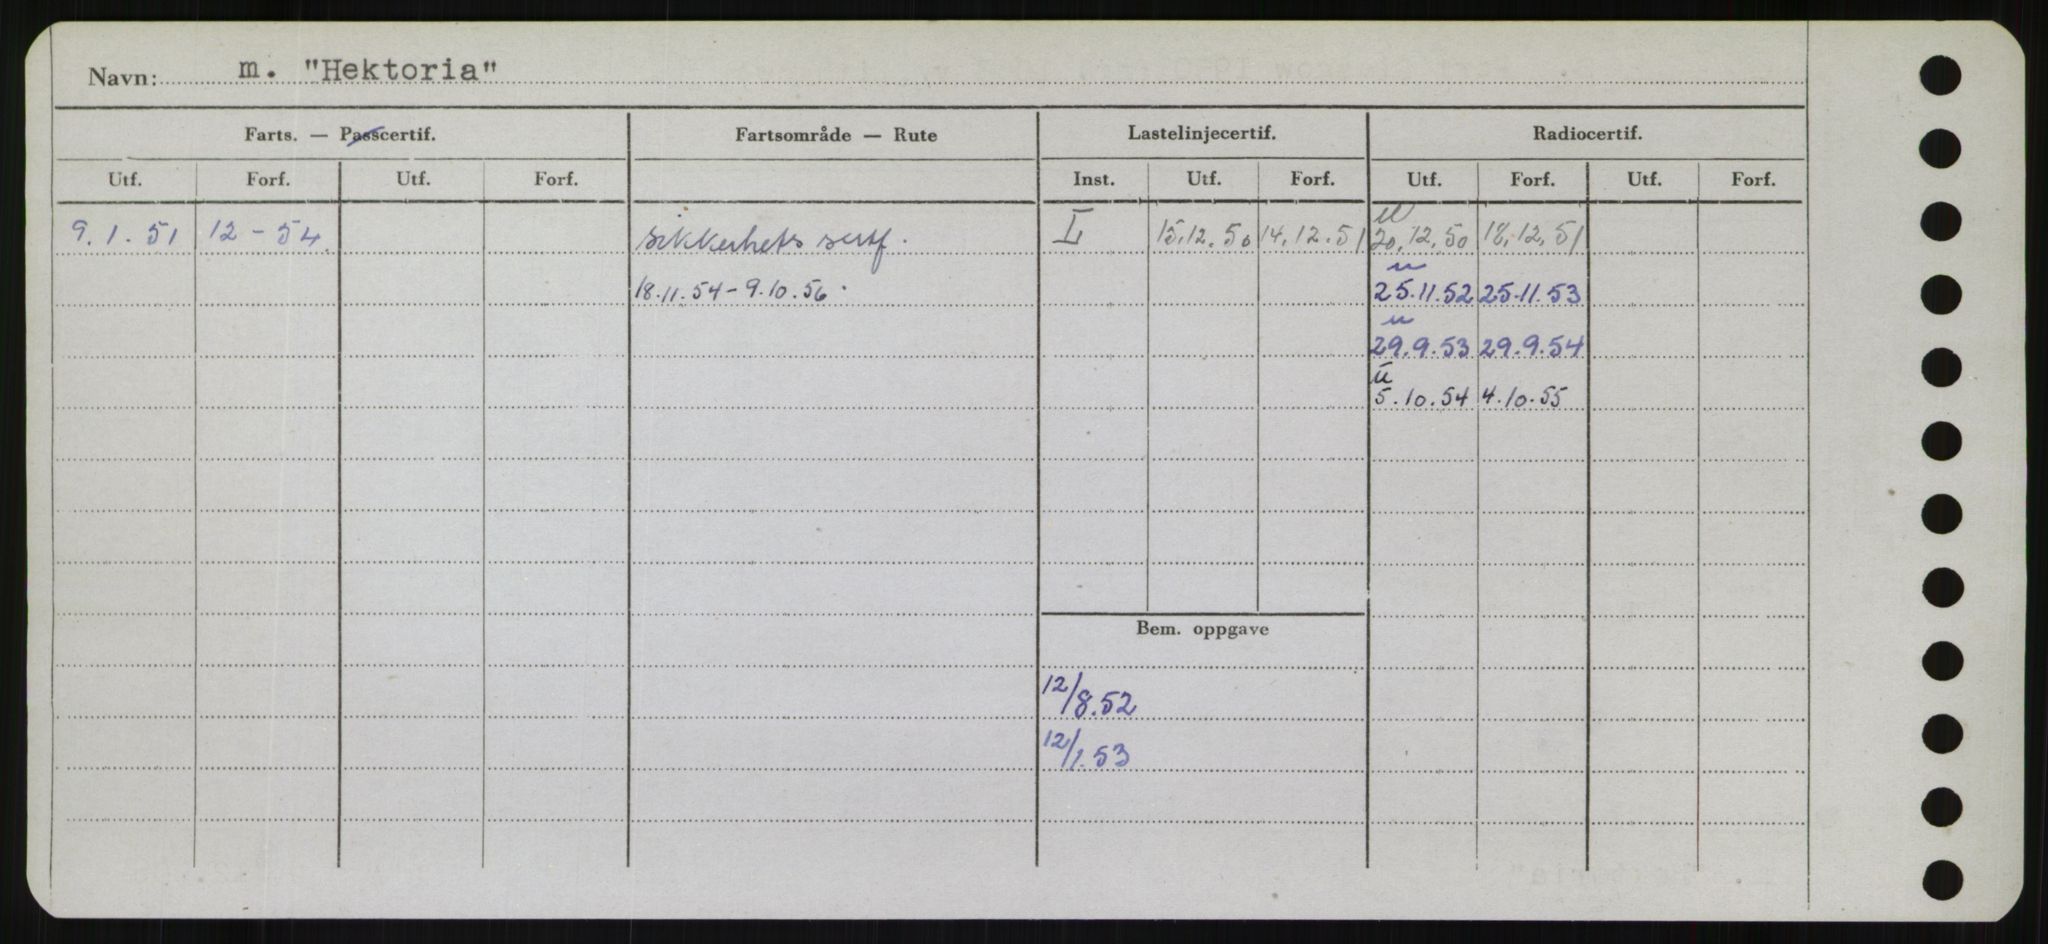 Navn: m. "Hektoria"
Farts. — Passcertif. Fartsområde — Rute Lastelinjecertif. Radiocertif.
Utf. Forf. Utf. Forf. Inst. Utf. Forf. Utf. Forf. Utf. Forf.
u
9.1.51 12-54 sikkerhets sertf. I 15.12.50 14.12.51 20.12.50 18.12.51
u
18.11.54-9.10.56. 25.11.52 25.11.53
u
29.9.53 29.9.54
u
5.10.54 4.10.55
Bem. oppgave
12/8.52
12/1.53